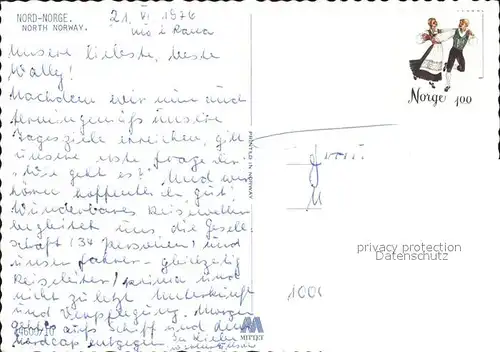 NORD-NORGE.
NORTH NORWAY.
21. VI. 1976
Mo i Rana
Unsere liebste, beste
Wally!
Nachdem wir nun und
termingemäß unsere
Tagesziele erreichen, gilt
unsere erste Frage der
"Wie geht es?" Und wir
hören hoffentlich gut!
Wunderbares Reisewetter
begleitet uns die Gesell-
schaft (34 Personen) und
unser Fahrer - gleichzeitig
Reiseleiter, prima und
nicht zuletzt Unterkünfte
und Verpflegung. Morgen
geht's aufs Schiff und dem
Nordcap entgegen.
PRINTED IN NORWAY
MITTET
Norge 100
privacy protection
Datenschutz
1000